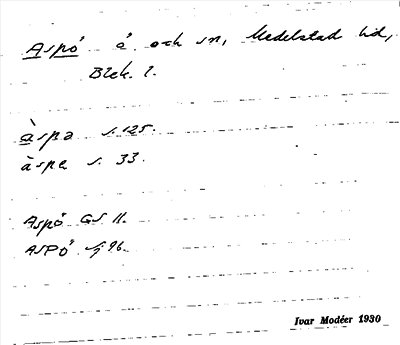 Aspö ö och sn, Medelstad hd,
Blek. l.
àspa s. 125.
àspe s. 33.
Aspö GS 11.
ASPÖ Sj 96.
Ivar Modéer 1930